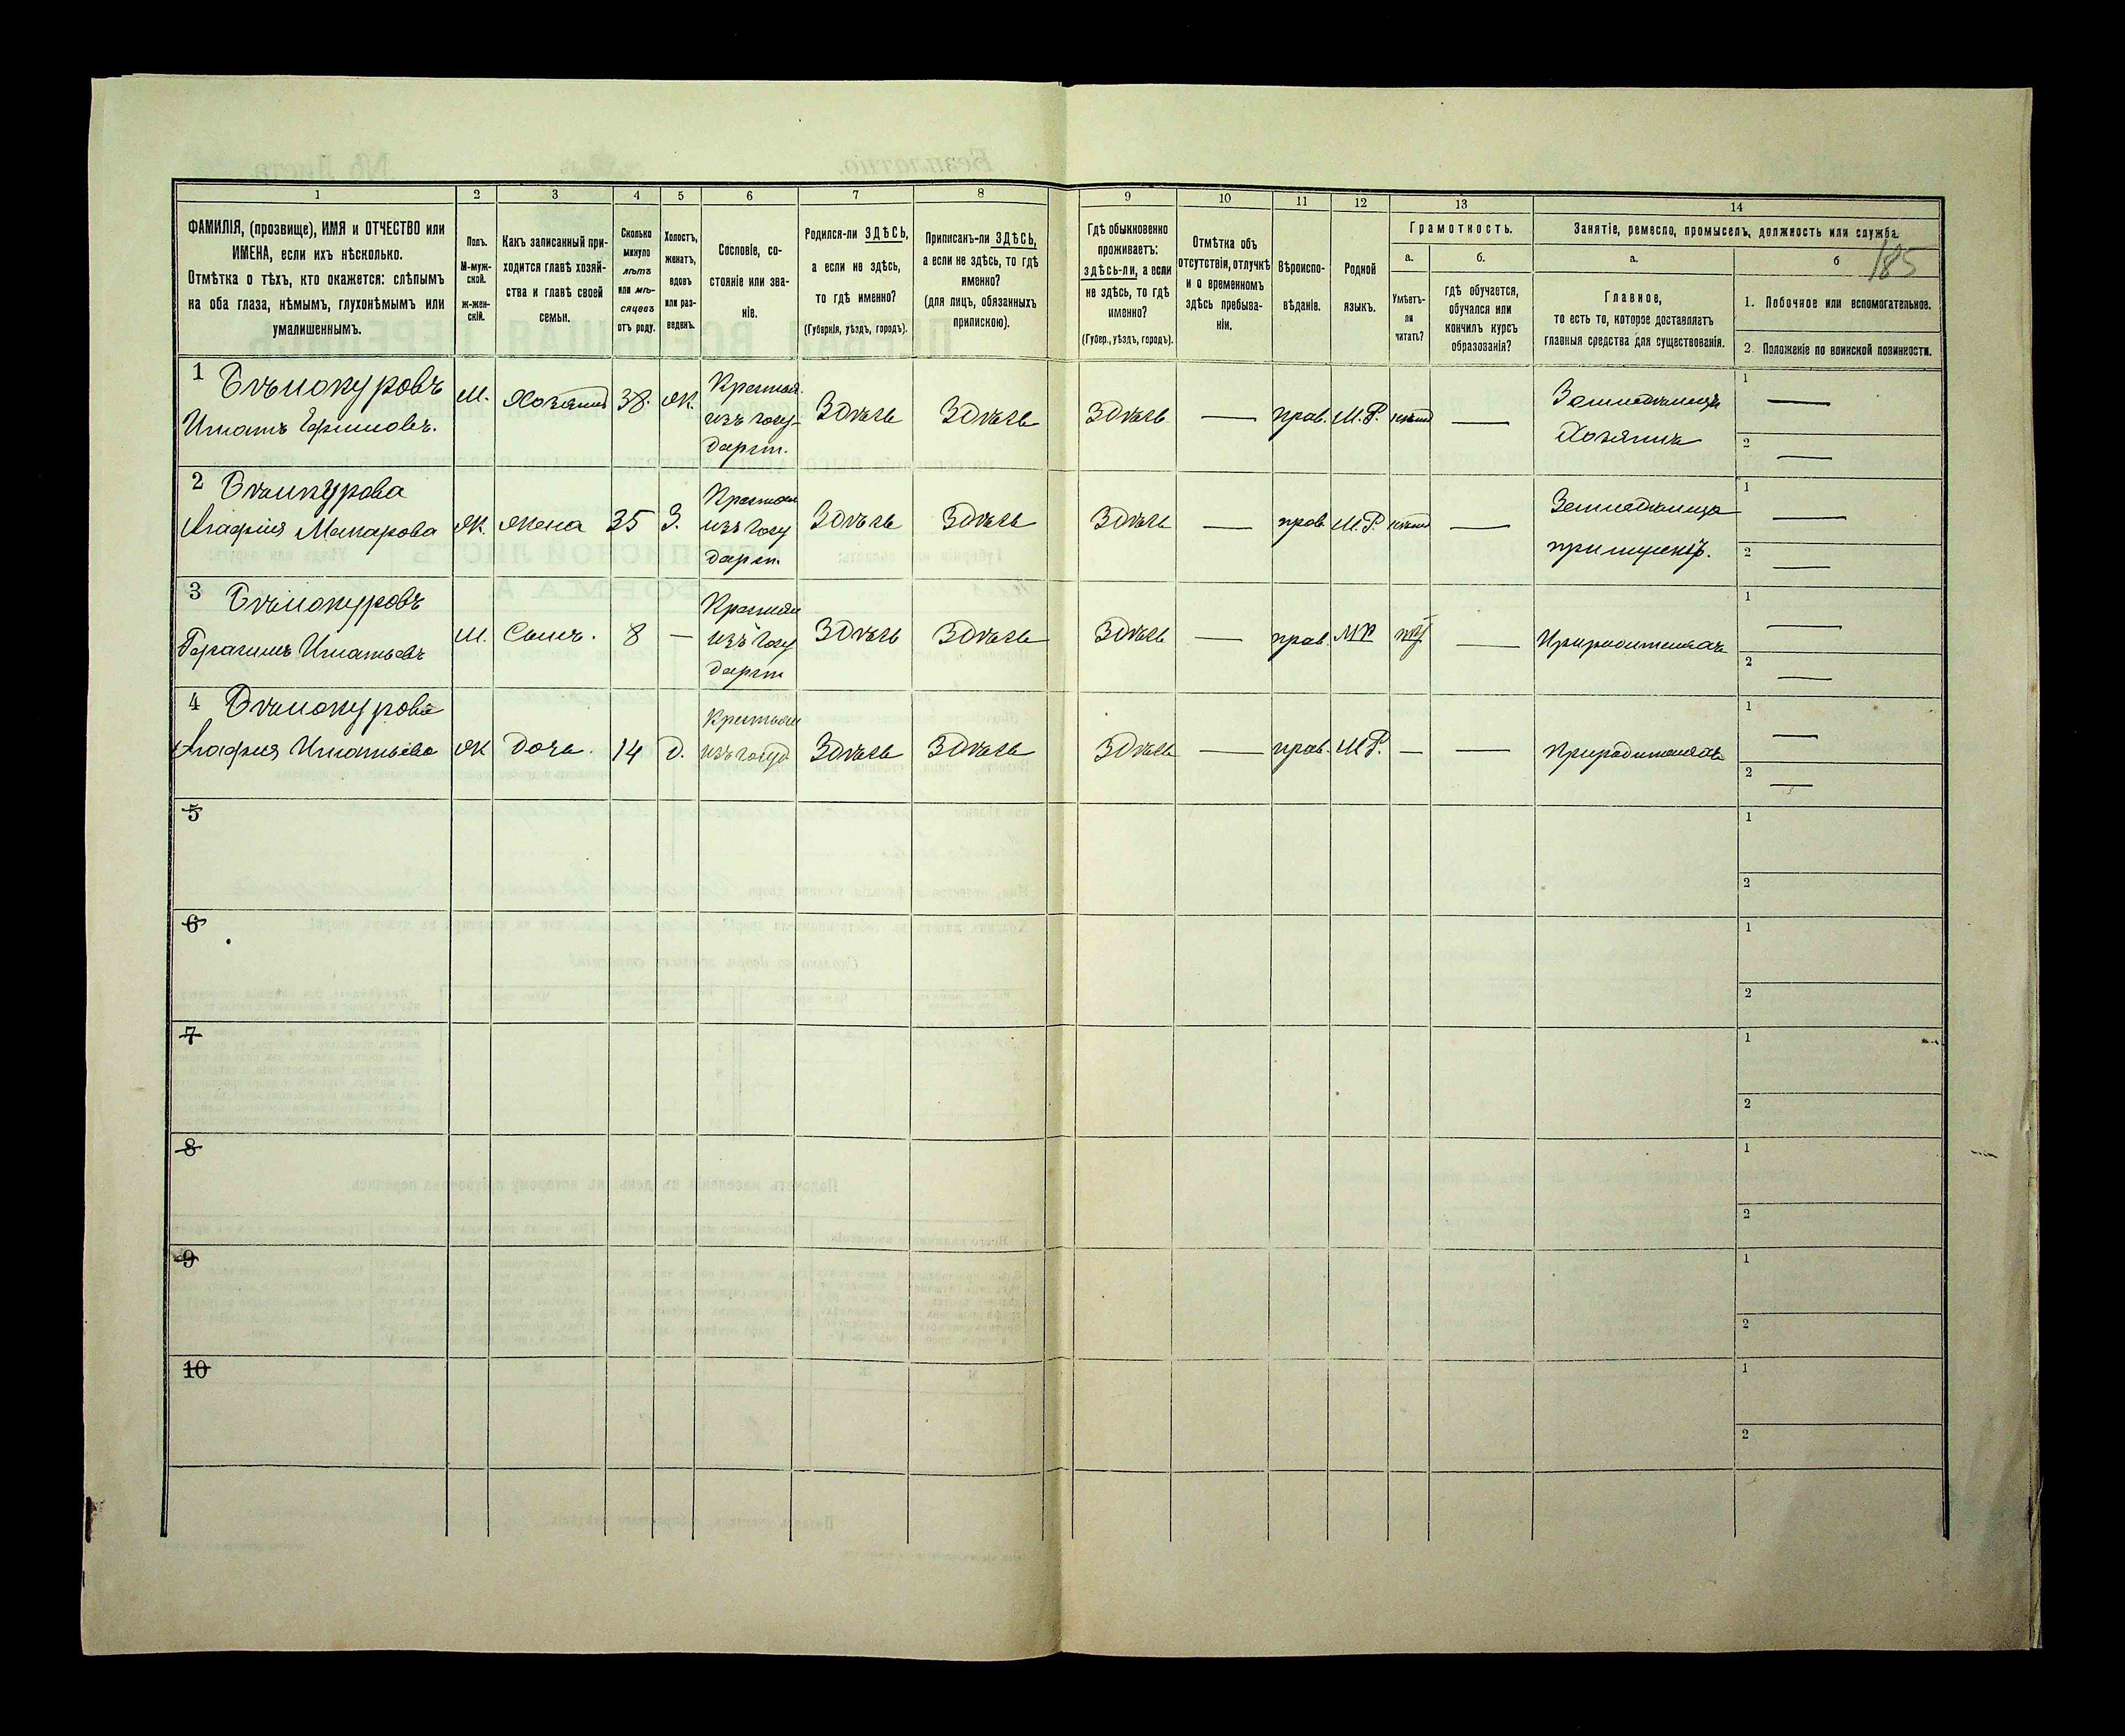 1 2 3 4 5 6 7 8 9 10 11 12 13 14
185
ФАМИЛІЯ, (прозвище), ИМЯ и ОТЧЕСТВО или
ИМЕНА, если ихъ нѣсколько.
Отмѣтка о тѣхъ, кто окажется: слѣпымъ
на оба глаза, нѣмымъ, глухонѣмымъ или
умалишеннымъ.
Полъ.
М-муж-
ской.
Ж-жен-
скій.
Какъ записанный при-
ходится главѣ хозяй-
ства и главѣ своей
семьи.
Сколько
минуло
лѣтъ
или мѣ-
сяцевъ
отъ роду.
Холостъ,
женатъ,
вдовъ
или раз-
веденъ.
Сословіе, со-
стояніе или зва-
ніе.
Родился-ли ЗДѢСЬ,
а если не здѣсь,
то гдѣ именно?
(Губернія, уѣздъ, городъ).
Приписанъ-ли ЗДѢСЬ,
а если не здѣсь, то гдѣ
именно?
(для лицъ, обязанныхъ
припискою).
Гдѣ обыкновенно
проживаетъ:
здѣсь-ли, а если
не здѣсь, то гдѣ
именно?
(Губер., уѣздъ, городъ).
Отмѣтка объ
отсутствіи, отлучкѣ
и о временномъ
здѣсь пребыва-
ніи.
Вѣроиспо-
вѣданіе.
Родной
языкъ.
Грамотность.
а.
Умѣетъ-
ли
читать?
б.
гдѣ обучается,
обучался или
кончилъ курсъ
образованія?
Занятіе, ремесло, промыселъ, должность или служба.
а.
Главное,
то есть то, которое доставляетъ
главныя средства для существованія.
б
1. Побочное или вспомогательное.
2. Положеніе по воинской повинности.
1 Бѣлокуровъ
Игнатъ Ефимовъ.
М. Хозяинъ 38. Ж. Крестьян.
изъ госу-
дарст.
Здѣсь Здѣсь Здѣсь — прав. М.Р. —
Хозяинъ
1 —
2 —
2 Бѣлокурова
Агафія Макарова
Ж. Жена 35 З. Крестьян
изъ госу
дарст.
Здѣсь Здѣсь Здѣсь — прав. М.Р. —
1 —
2 —
3 Бѣлокуровъ
Герасимъ Игнатьевъ
М. Сынъ. 8 — Крестьян
изъ госу
дарст
Здѣсь Здѣсь Здѣсь — прав. МР —
При родителяхъ
1 —
2 —
4 Бѣлокурова
Агафия Игнатьева
Ж Дочь. 14 Д. Крестьян
изъ госуд
Здѣсь Здѣсь Здѣсь — прав. М.Р. — —
При родителяхъ
1 —
2 —
5 1
2
6 1
2
7 1
2
8 1
2
9 1
2
10 1
2